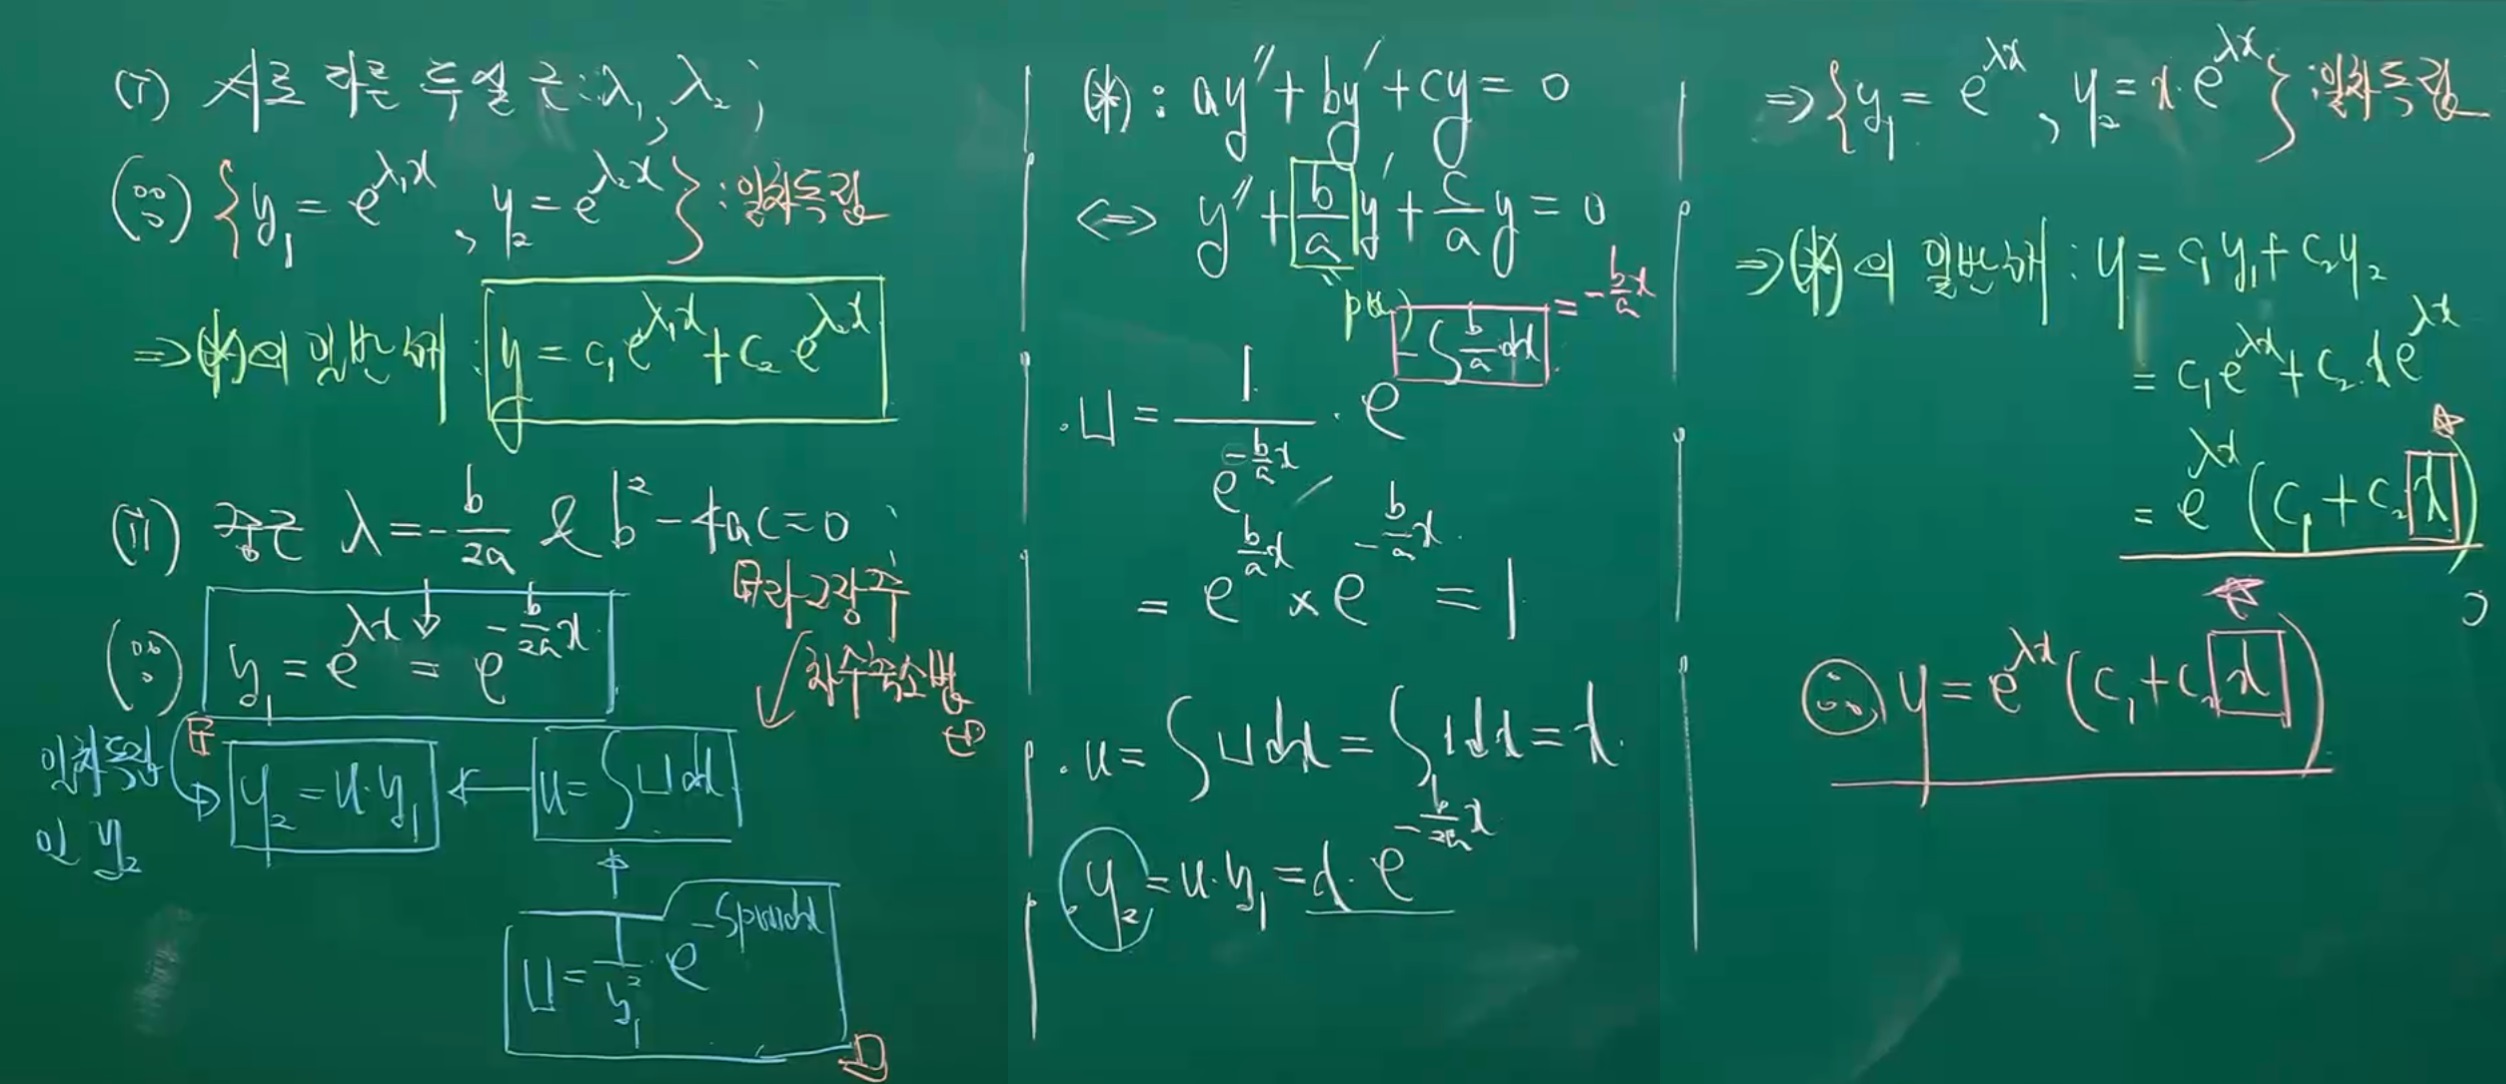 (i) 서로 다른 두 실근: λ₁, λ₂ ;
(∵) {y₁ = e^{λ₁x}, y₂ = e^{λ₂x}} : 일차독립
⇒ (*)의 일반해 : y = c₁e^{λ₁x} + c₂e^{λ₂x}
(ii) 중근 λ = -b/2a & b² - 4ac = 0 ;
(∵) y₁ = e^{λx} = e^{-b/2a x}
라그랑주
차수축소법
일차독립
인 y₂
y₂ = u·y₁ ← u = ∫Udx
U = 1/y₁² · e^{-∫p(x)dx}
(*) : ay'' + by' + cy = 0
⇔ y'' + b/a y' + c/a y = 0
p(x)
· U = 1/e^{-b/a x} · e^{-∫b/a dx} = -b/a x
= e^{b/a x} × e^{-b/a x} = 1
· u = ∫Udx = ∫1dx = x.
y₂ = u·y₁ = x·e^{-b/2a x}
⇒ {y₁ = e^{λx}, y₂ = x·e^{λx}} : 일차독립
⇒ (*)의 일반해 : y = c₁y₁ + c₂y₂
= c₁e^{λx} + c₂·xe^{λx}
= e^{λx}(c₁ + c₂x)
∴ y = e^{λx}(c₁ + c₂x)